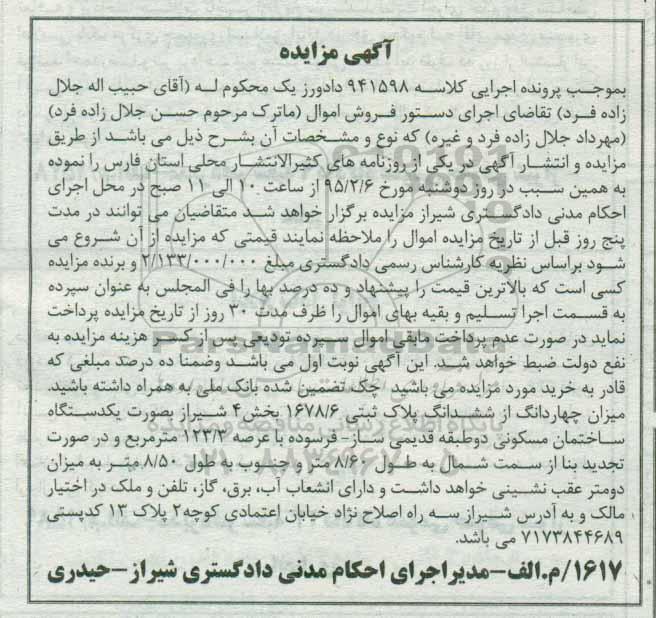 آگهی مزایده
بموجب پرونده اجرایی کلاسه ۹۴۱۵۹۸ دادورز یک محکوم له (آقای حبیب اله جلال
زاده فرد) تقاضای اجرای دستور فروش اموال (ماترک مرحوم حسن جلال زاده فرد)
(مهرداد جلال زاده فرد و غیره) که نوع و مشخصات آن بشرح ذیل می باشد از طریق
مزایده و انتشار آگهی در یکی از روزنامه های کثیرالانتشار محلی استان فارس را نموده
به همین سبب در روز دوشنبه مورخ ۹۵/۲/۶ از ساعت ۱۰ الی ۱۱ صبح در محل اجرای
احکام مدنی دادگستری شیراز مزایده برگزار خواهد شد متقاضیان می توانند در مدت
پنج روز قبل از تاریخ مزایده اموال را ملاحظه نمایند قیمتی که مزایده از آن شروع می
شود براساس نظریه کارشناس رسمی دادگستری مبلغ ۲/۱۳۳/۰۰۰/۰۰۰ و برنده مزایده
کسی است که بالاترین قیمت را پیشنهاد و ده درصد بها را فی المجلس به عنوان سپرده
به قسمت اجرا تسلیم و بقیه بهای اموال را ظرف مدت ۳۰ روز از تاریخ مزایده پرداخت
نماید در صورت عدم پرداخت مابقی اموال سپرده تودیعی پس از کسر هزینه مزایده به
نفع دولت ضبط خواهد شد. این آگهی نوبت اول می باشد وضمنا ده درصد مبلغی که
قادر به خرید مورد مزایده می باشید چک تضمین شده بانک ملی به همراه داشته باشید.
میزان چهاردانگ از ششدانگ پلاک ثبتی ۱۶۷۸/۶ بخش۴ شیراز بصورت یکدستگاه
ساختمان مسکونی دوطبقه قدیمی ساز- فرسوده با عرصه ۱۲۳/۳ مترمربع و در صورت
تجدید بنا از سمت شمال به طول ۸/۶۰ متر و جنوب به طول ۸/۵۰ متر به میزان
دومتر عقب نشینی خواهد داشت و دارای انشعاب آب، برق، گاز، تلفن و ملک در اختیار
مالک و به آدرس شیراز سه راه اصلاح نژاد خیابان اعتمادی کوچه۲ پلاک ۱۳ کدپستی
۷۱۷۳۸۴۴۶۸۹ می باشد.
۱۶۱۷/م.الف-مدیراجرای احکام مدنی دادگستری شیراز-حیدری
ParsNamadData
پایگاه اطلاع رسانی مناقصه و مزایده